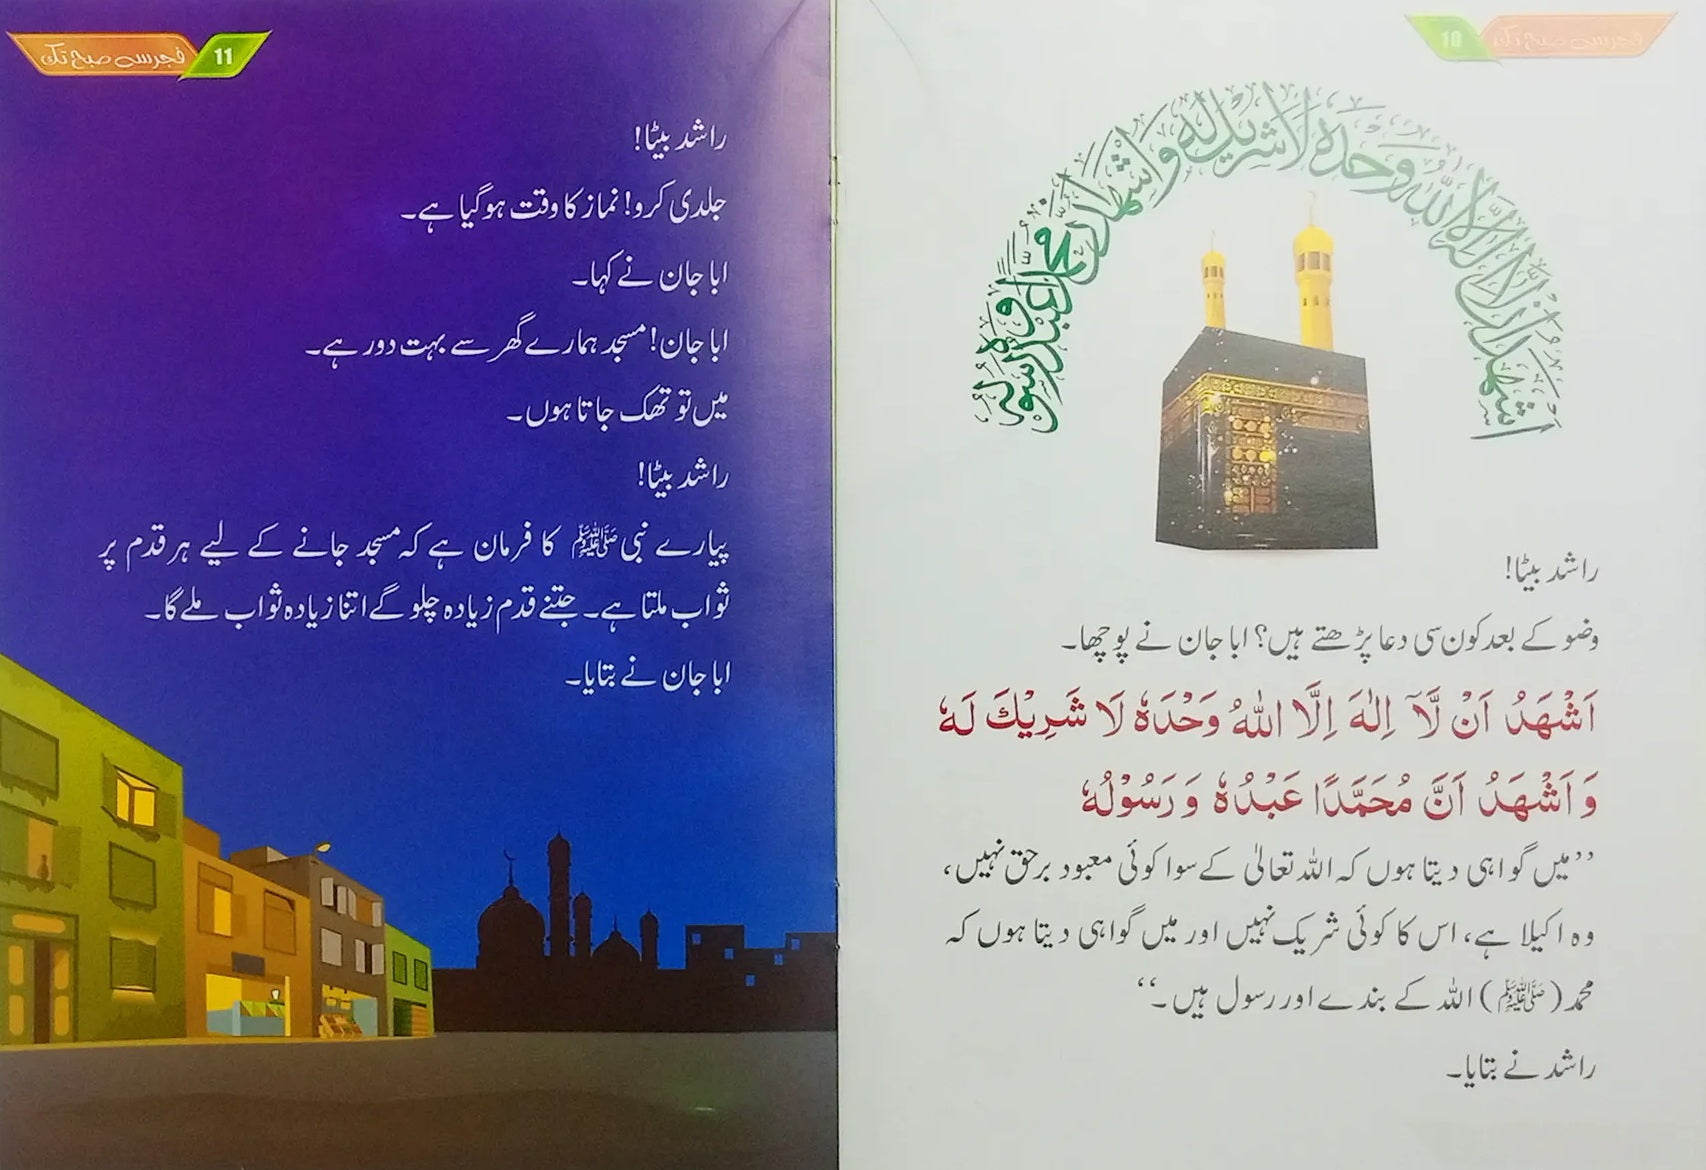 فجر سے صبح تک
10
اشهد ان لا اله الا الله وحده لا شريك له واشهد ان محمدا عبده ورسوله
راشد بیٹا!
وضو کے بعد کون سی دعا پڑھتے ہیں؟ ابا جان نے پوچھا۔
اَشْهَدُ اَنْ لَّآ اِلٰهَ اِلَّا اللهُ وَحْدَهٗ لَا شَرِيْكَ لَهٗ
وَاَشْهَدُ اَنَّ مُحَمَّدًا عَبْدُهٗ وَرَسُوْلُهٗ
’’میں گواہی دیتا ہوں کہ اللہ تعالیٰ کے سوا کوئی معبود برحق نہیں،
وہ اکیلا ہے، اس کا کوئی شریک نہیں اور میں گواہی دیتا ہوں کہ
محمد (ﷺ) اللہ کے بندے اور رسول ہیں۔‘‘
راشد نے بتایا۔
فجر سے صبح تک
11
راشد بیٹا!
جلدی کرو! نماز کا وقت ہو گیا ہے۔
ابا جان نے کہا۔
ابا جان! مسجد ہمارے گھر سے بہت دور ہے۔
میں تو تھک جاتا ہوں۔
راشد بیٹا!
پیارے نبی ﷺ کا فرمان ہے کہ مسجد جانے کے لیے ہر قدم پر
ثواب ملتا ہے۔ جتنے قدم زیادہ چلو گے اتنا زیادہ ثواب ملے گا۔
ابا جان نے بتایا۔